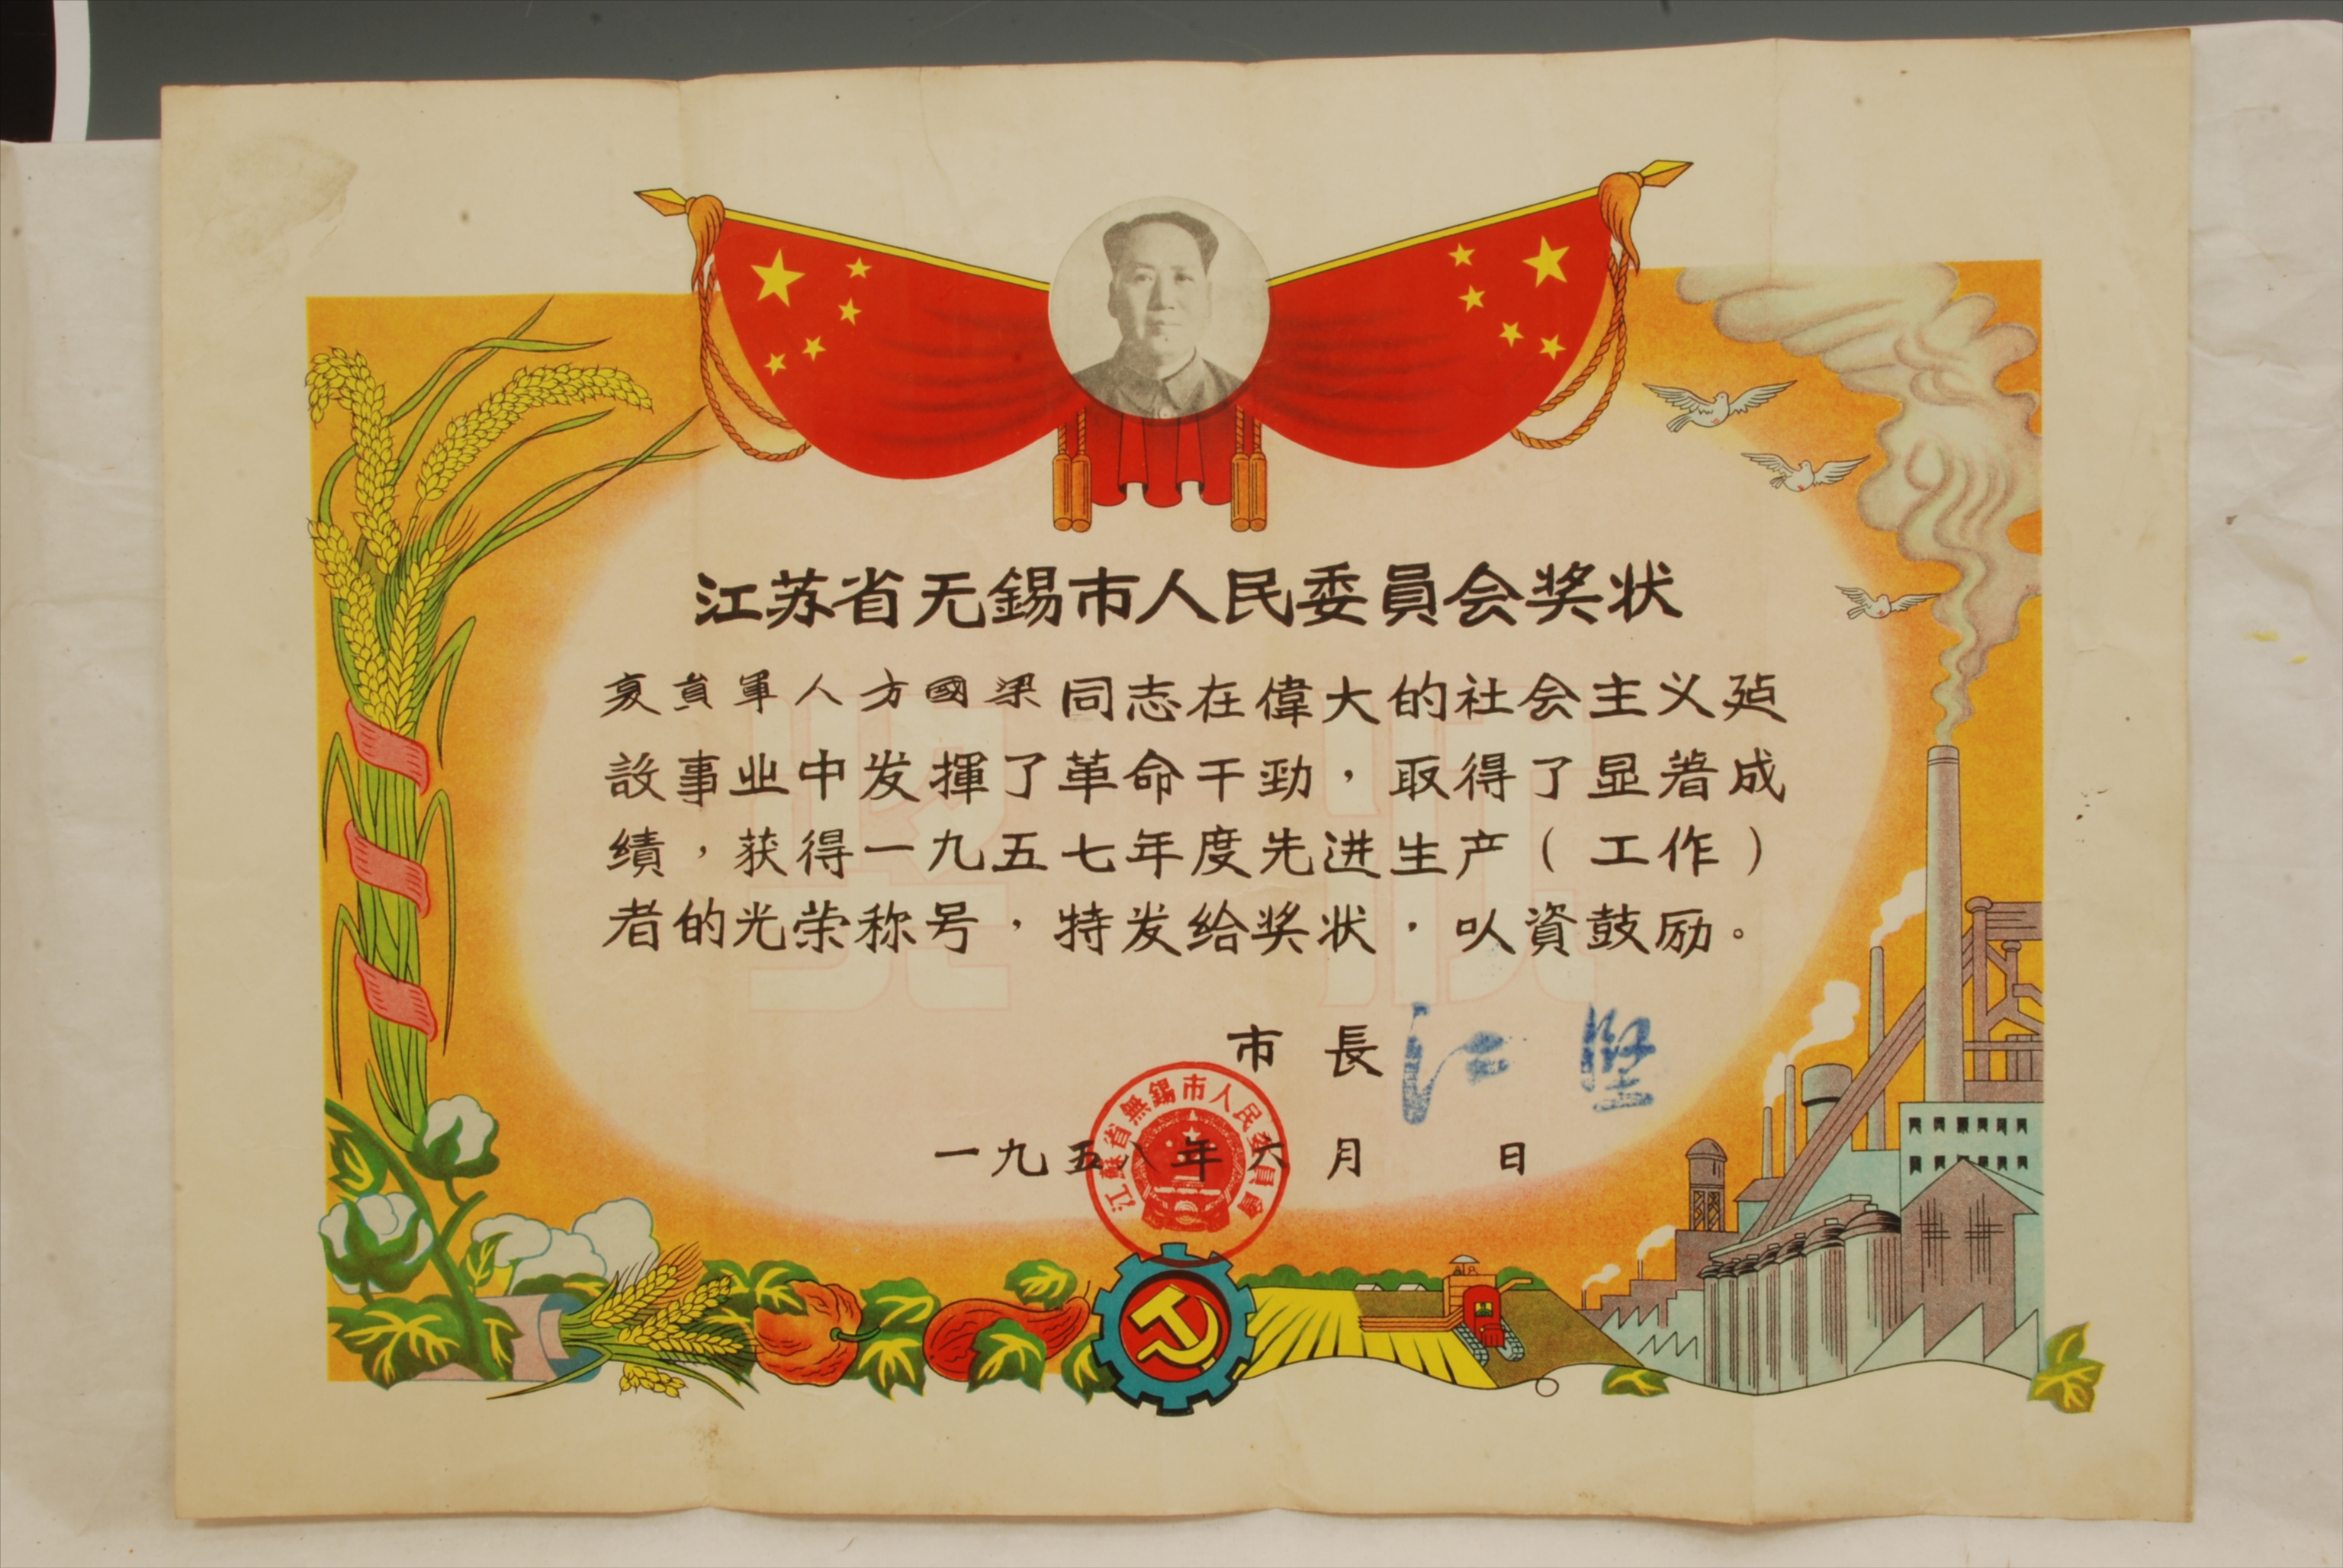 江苏省无錫市人民委員会奖状
复員軍人方國梁同志在偉大的社会主义建
設事业中发揮了革命干勁，取得了显著成
績，获得一九五七年度先进生产（工作）
者的光荣称号，特发给奖状，以資鼓励。
市長 江堅
江蘇省無錫市人民委員會
一九五八年六月 日